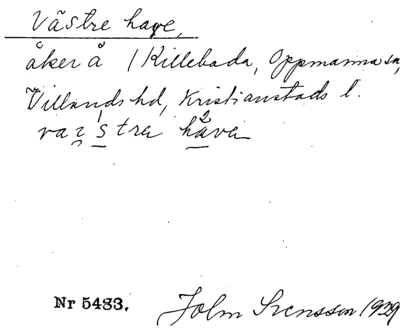 Västre have,
åker å /Killebada, Oppmanna sn,
Villands hd, Kristianstads l.
hava
Nr 5483.
John Svensson 1929